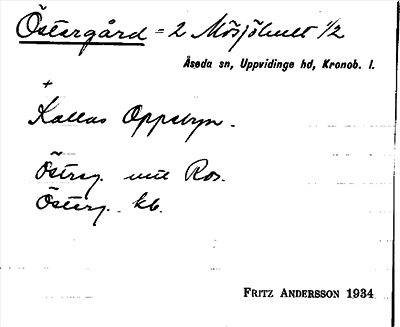 Östergård = 2 Mösjöhult 1/2
Åseda sn, Uppvidinge hd, Kronob. l.
+
Kallas Oppebyn.
Österg. utt Ros.
Österg. kb.
FRITZ ANDERSSON 1934